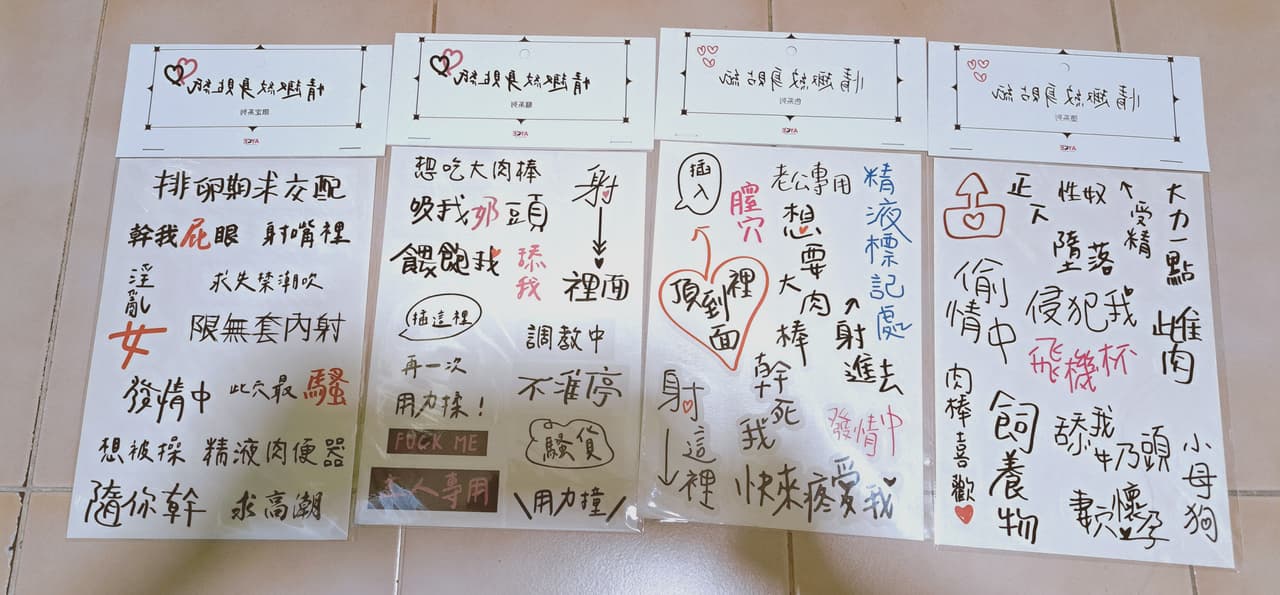 情趣紋身貼紙
限定系列
AYCE
排卵期求交配
幹我屁眼
射嘴裡
淫亂女
求失禁潮吹
限無套內射
發情中
此穴最騷
想被操
精液肉便器
隨你幹
求高潮
情趣紋身貼紙
騷系列
AYCE
想吃大肉棒
吸我奶頭
射
裡面
餵飽我
舔我
插這裡
調教中
再一次
不准停
用力揉！
FUCK ME
騷貨
主人專用
用力撞
情趣紋身貼紙
色系列
AYCE
插入
膣穴
老公專用
精液標記處
想要大肉棒
頂到裡面
射進去
射這裡
幹死我
發情中
快來疼愛我
情趣紋身貼紙
AYCE
正下
性奴
受精
大力一點
墮落
偷情中
侵犯我
雌肉
飛機杯
肉棒喜歡
飼養物
舔我牛乃頭
小母狗
妻穴懷孕